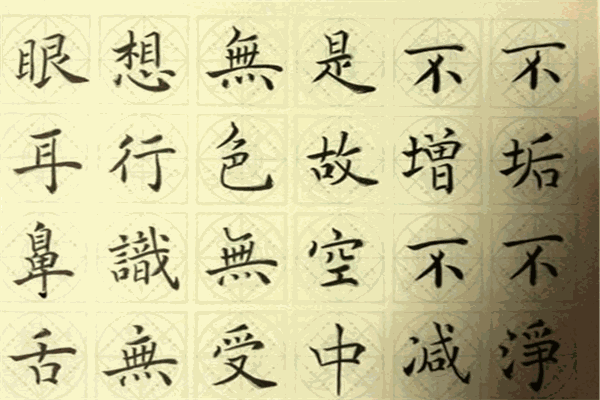 不垢不淨
不增不减
是故空中
無色無受
想行識無
眼耳鼻舌